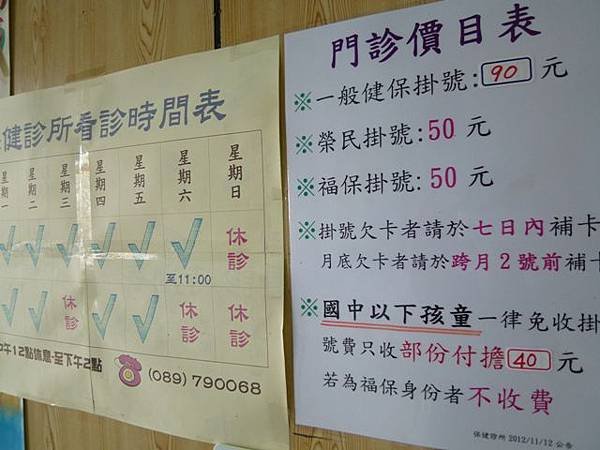 健診所看診時間表
星期一 星期二 星期三 星期四 星期五 星期六 星期日
至11:00
休診
休診 休診 休診
午12點休息-至下午2點
(089) 790068
門診價目表
※一般健保掛號:90 元
※榮民掛號:50 元
※福保掛號:50 元
※掛號欠卡者請於七日內補卡
月底欠卡者請於跨月2號前補卡
※國中以下孩童一律免收掛
號費只收部份付擔 40 元
若為福保身份者不收費
保健診所 2012/11/12 公告